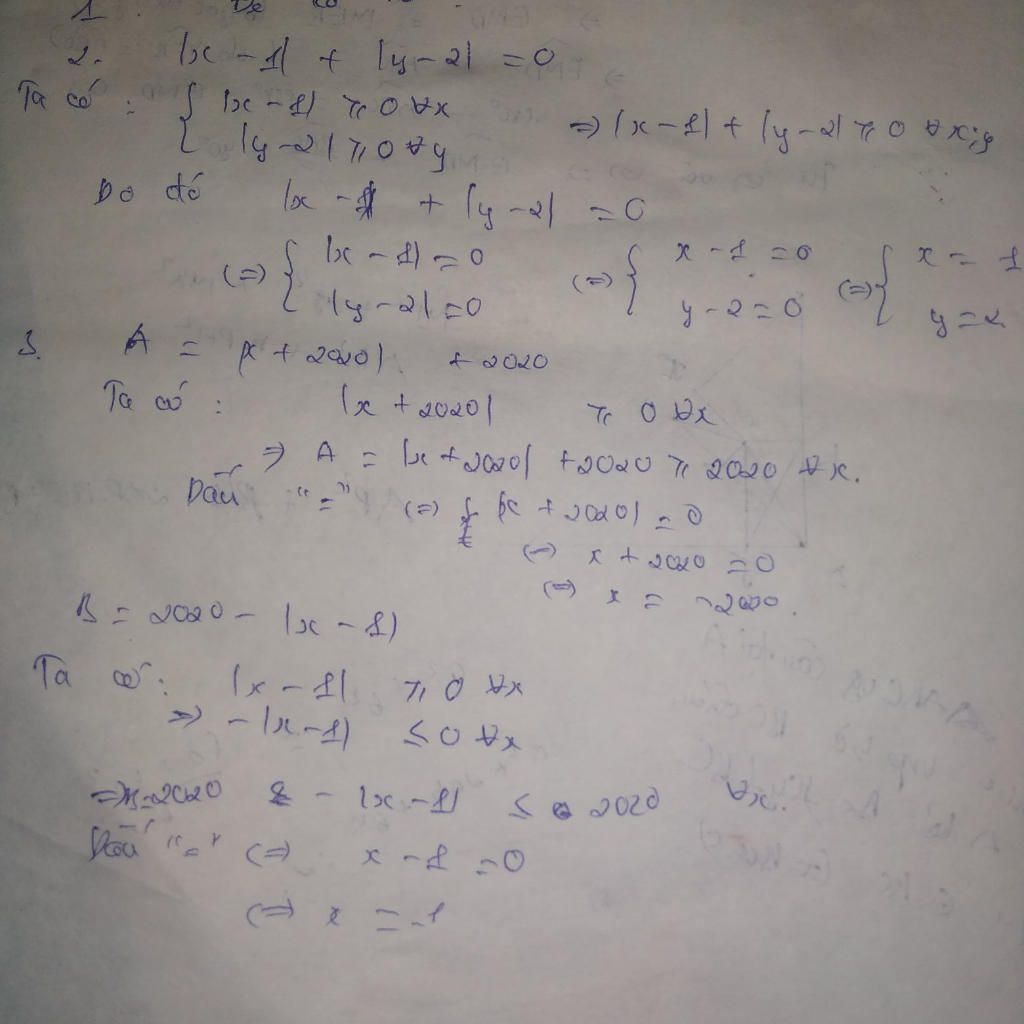 1. Dễ có
2. |x - 1| + |y - 2| = 0
Ta có : { |x - 1| ≥ 0 ∀x
|y - 2| ≥ 0 ∀y => |x - 1| + |y - 2| ≥ 0 ∀x;y
Do đó |x - 1| + |y - 2| = 0
(=) { |x - 1| = 0 (=) { x - 1 = 0 (=) { x = 1
|y - 2| = 0 y - 2 = 0 y = 2
3. A = |x + 2020| + 2020
Ta có : |x + 2020| ≥ 0 ∀x
=> A = |x + 2020| + 2020 ≥ 2020 ∀x.
Dấu "=" (=) |x + 2020| = 0
(=) x + 2020 = 0
(=) x = -2020.
B = 2020 - |x - 1|
Ta có : |x - 1| ≥ 0 ∀x
=> - |x - 1| ≤ 0 ∀x
=> B = 2020 - |x - 1| ≤ 2020 ∀x.
Dấu "=" (=) x - 1 = 0
(=) x = 1